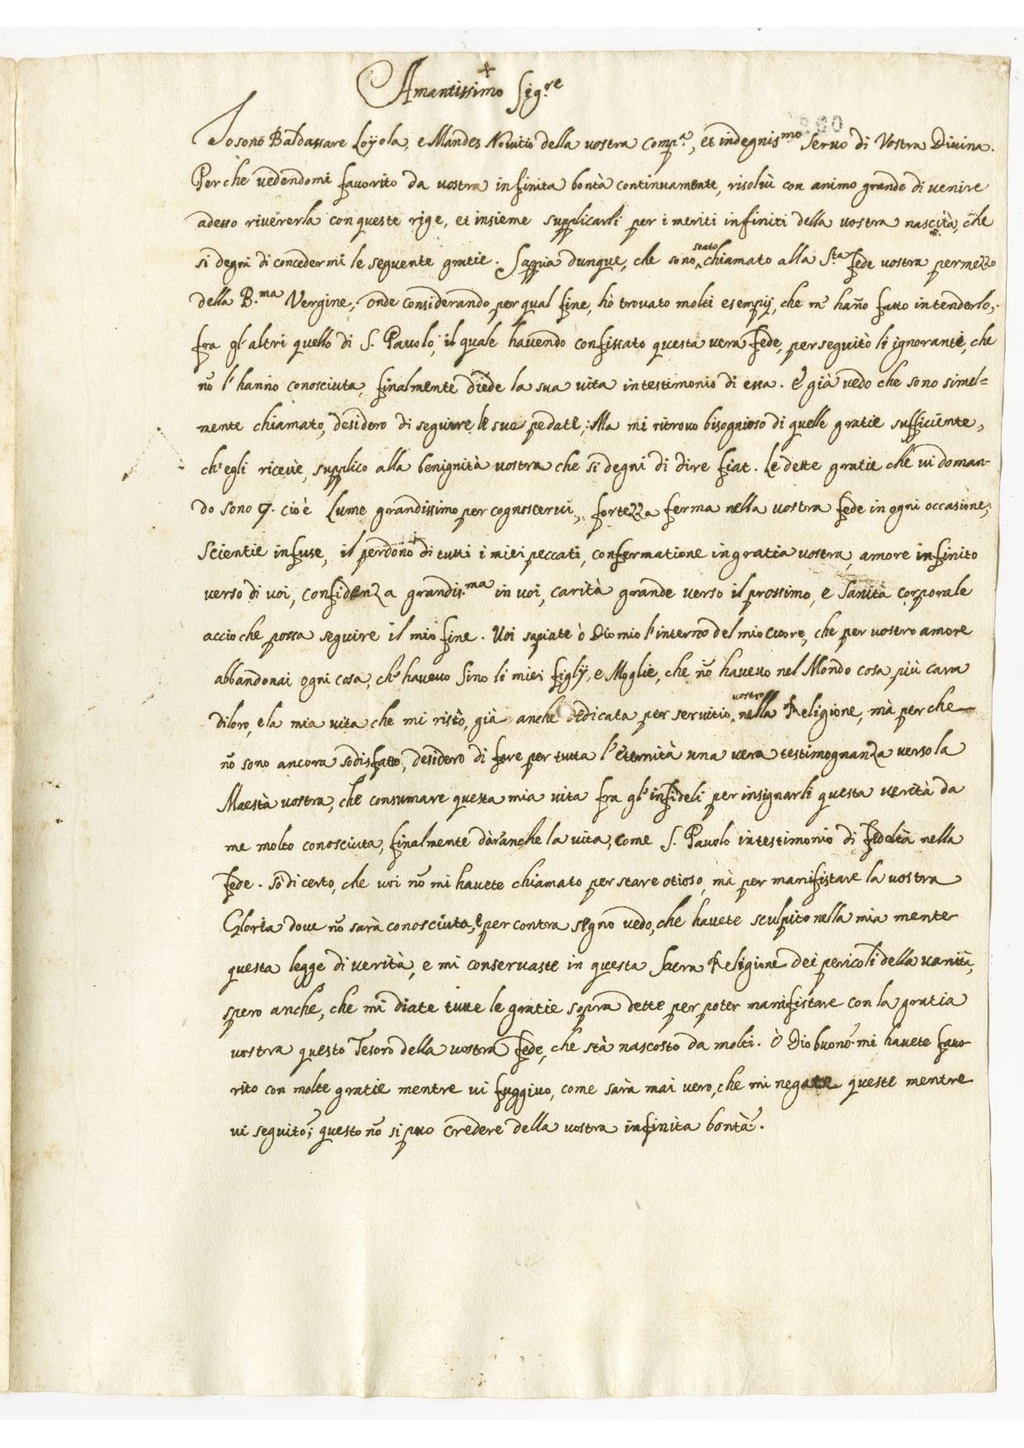 +
Amantissimo Sig.re
Io sono Baldassare Loyola, e Mandes Novitio della vostra Comp.a, et indegnis.mo Servo di Vostra Divina.
Perche vedendomi favorito da vostra infinita bontà continuamente, risolvi con animo grande di venire
adesso riverirla con queste rige, et insieme supplicarli per i meriti infiniti della vostra nascità, che
si degni di concedermi le seguente gratie. Sappia dunque, che sono stato chiamato alla S.ta Fede vostra per mezzo
della B.ma Vergine, onde considerando per qual fine, hò trovato molti esempij, che m' hañо fatto intenderlo,
fra gl' altri quello di S. Pavolo, il quale havendo confissato questa vera Fede, perseguitò li ignorante, che
nõ l' hanno conosciuta, finalmente diede la sua vita in testimonio di essa. E già vedo che sono simel=
mente chiamato, desidero di seguire le sue pedate; Ma mi ritrovo bisognioso di quelle gratie sufficiente,
ch' egli riceve, supplico alla benignità vostra che si degni di dire fiat. Le dette gratie che vi doman-
do sono 9. cio è Lume grandissimo per cognoscervi, fortezza ferma nella vostra fede in ogni occasione,
Scientie infuse, il perdono di tutti i miei peccati, confermatione in gratia vostra, amore infinito
verso di voi, confidenza grandis.ma in voi, carità grande verso il prossimo, e Sanità corporale
accioche possa seguire il mio fine. Voi sapiate ò Dio mio l' interno del mio cuore, che per vostro amore
abbandonai ogni cosa, ch' havevo sino li miei figlÿ, e Moglie, che nõ havevo nel Mondo cosa più cara
di loro, e la mia vita che mi ristò, già anche dedicata per servitio vostro nella Religione, mà perche
nõ sono ancora sodisfatto, desidero di fare per tutta l' eternità una vera testimognanza verso la
Maestà vostra, che consumare questa mia vita fra gl' infideli per insignarli questa verità da
me molto conosciuta, finalmente dàr anche la vita, come S. Pavolo in testimonio di fedeltà nella
fede. Sò di certo, che voi nõ mi havete chiamato per stare otioso, mà per manifistare la vostra
Gloria dove nõ sarà conosciuta, e per contra segno vedo, che havete sculpito nella mia menter
questa legge di verità, e mi conservaste in questa Sacra Religione dei pericoli della vanità,
spero anche, che mi diate tutte le gratie sopra dette per poter manifistare con la gratia
vostra questo Tesoro della vostra fede, che stà nascosto da molti. ò Dio buono mi havete favo-
rito con molte gratie mentre vi fuggivo, come sarà mai vero, che mi negate queste mentre
vi seguito; questo nõ si può credere della vostra infinita bontà.